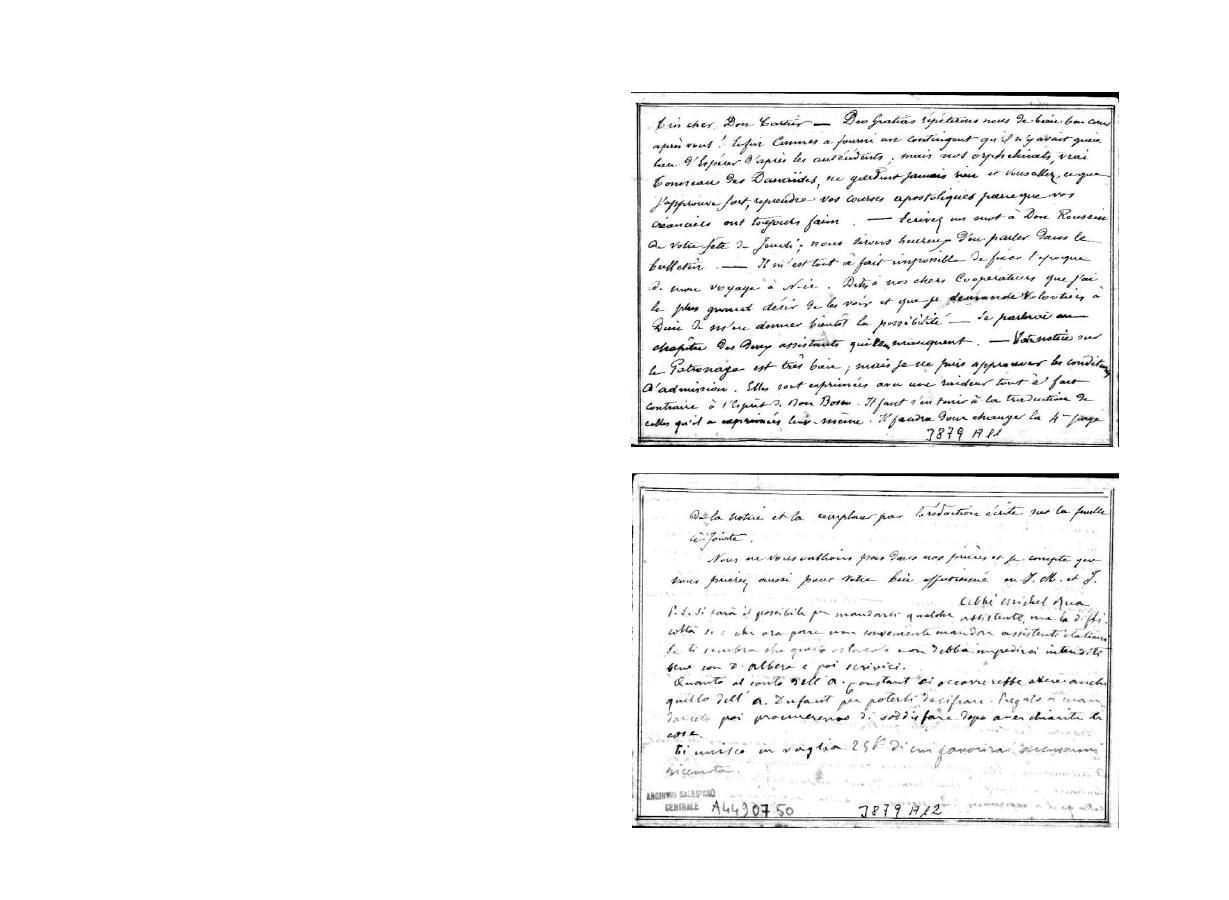 Très cher Don Cartier — Deo Gratias répéterons nous de bien bon cœur
après vous ! Enfin Cannes a fourni un contingent qu'il n'y avait guère
lieu d'Espérer d'après les antécédents ; mais nos orphelinats, vrai
Tonneau des Danaïdes, ne gardent jamais rien et vous allez, ce que
j'approuve fort, reprendre vos courses apostoliques parce que vos
créanciers ont toujours faim. — Ecrivez un mot à Don Roussin
de votre fête de Jeudi ; nous serons heureux d'en parler dans le
bulletin. — Il m'est tout à fait impossible de fixer l'époque
de mon voyage à Nice. Dites à nos chers Coopérateurs que j'ai
le plus grand désir de les voir et que je demande volontiers à
Dieu de m'en donner bientôt la possibilité — Je parlerai au
chapitre des deux assistants qui manquent. — Votre notice sur
le Patronage est très bien ; mais je ne puis approuver les conditions
d'admission. Elles sont exprimées avec une raideur tout à fait
contraire à l'Esprit de Don Bosco. Il faut s'en tenir à la traduction de
celles qu'il a exprimées lui-même. Il faudra donc changer la 4me page
3879 A11
de la notice et la remplacer par la rédaction écrite sur la feuille
ci-Jointe.
Nous ne vous oublions pas dans nos prières et je compte que
vous prierez aussi pour votre bien affectionné en J. M. et J.
Abbé Michel Rua
P.S. Si sarà possibile per mandarci qualche assistente, ma la diffi-
coltà si è che ora pare non conveniente mandar assistenti italiani
Se ti sembra che questo ostacolo non debba impedirci intenditi
bene con D. Albera e poi scrivici.
Quanto al conto dell' A. Constant ci occorrerebbe avere anche
quello dell' A. Dufaut per poterli decifrare. Pregalo a man-
darcelo poi procureremo di soddisfare dopo aver chiarite le
cose.
Ti unisco un vaglia 25 fr di cui favorirai accusarmi
ricevuta.
ARCHIVIO SALESIANO
CENTRALE
A4490750
3879 A12